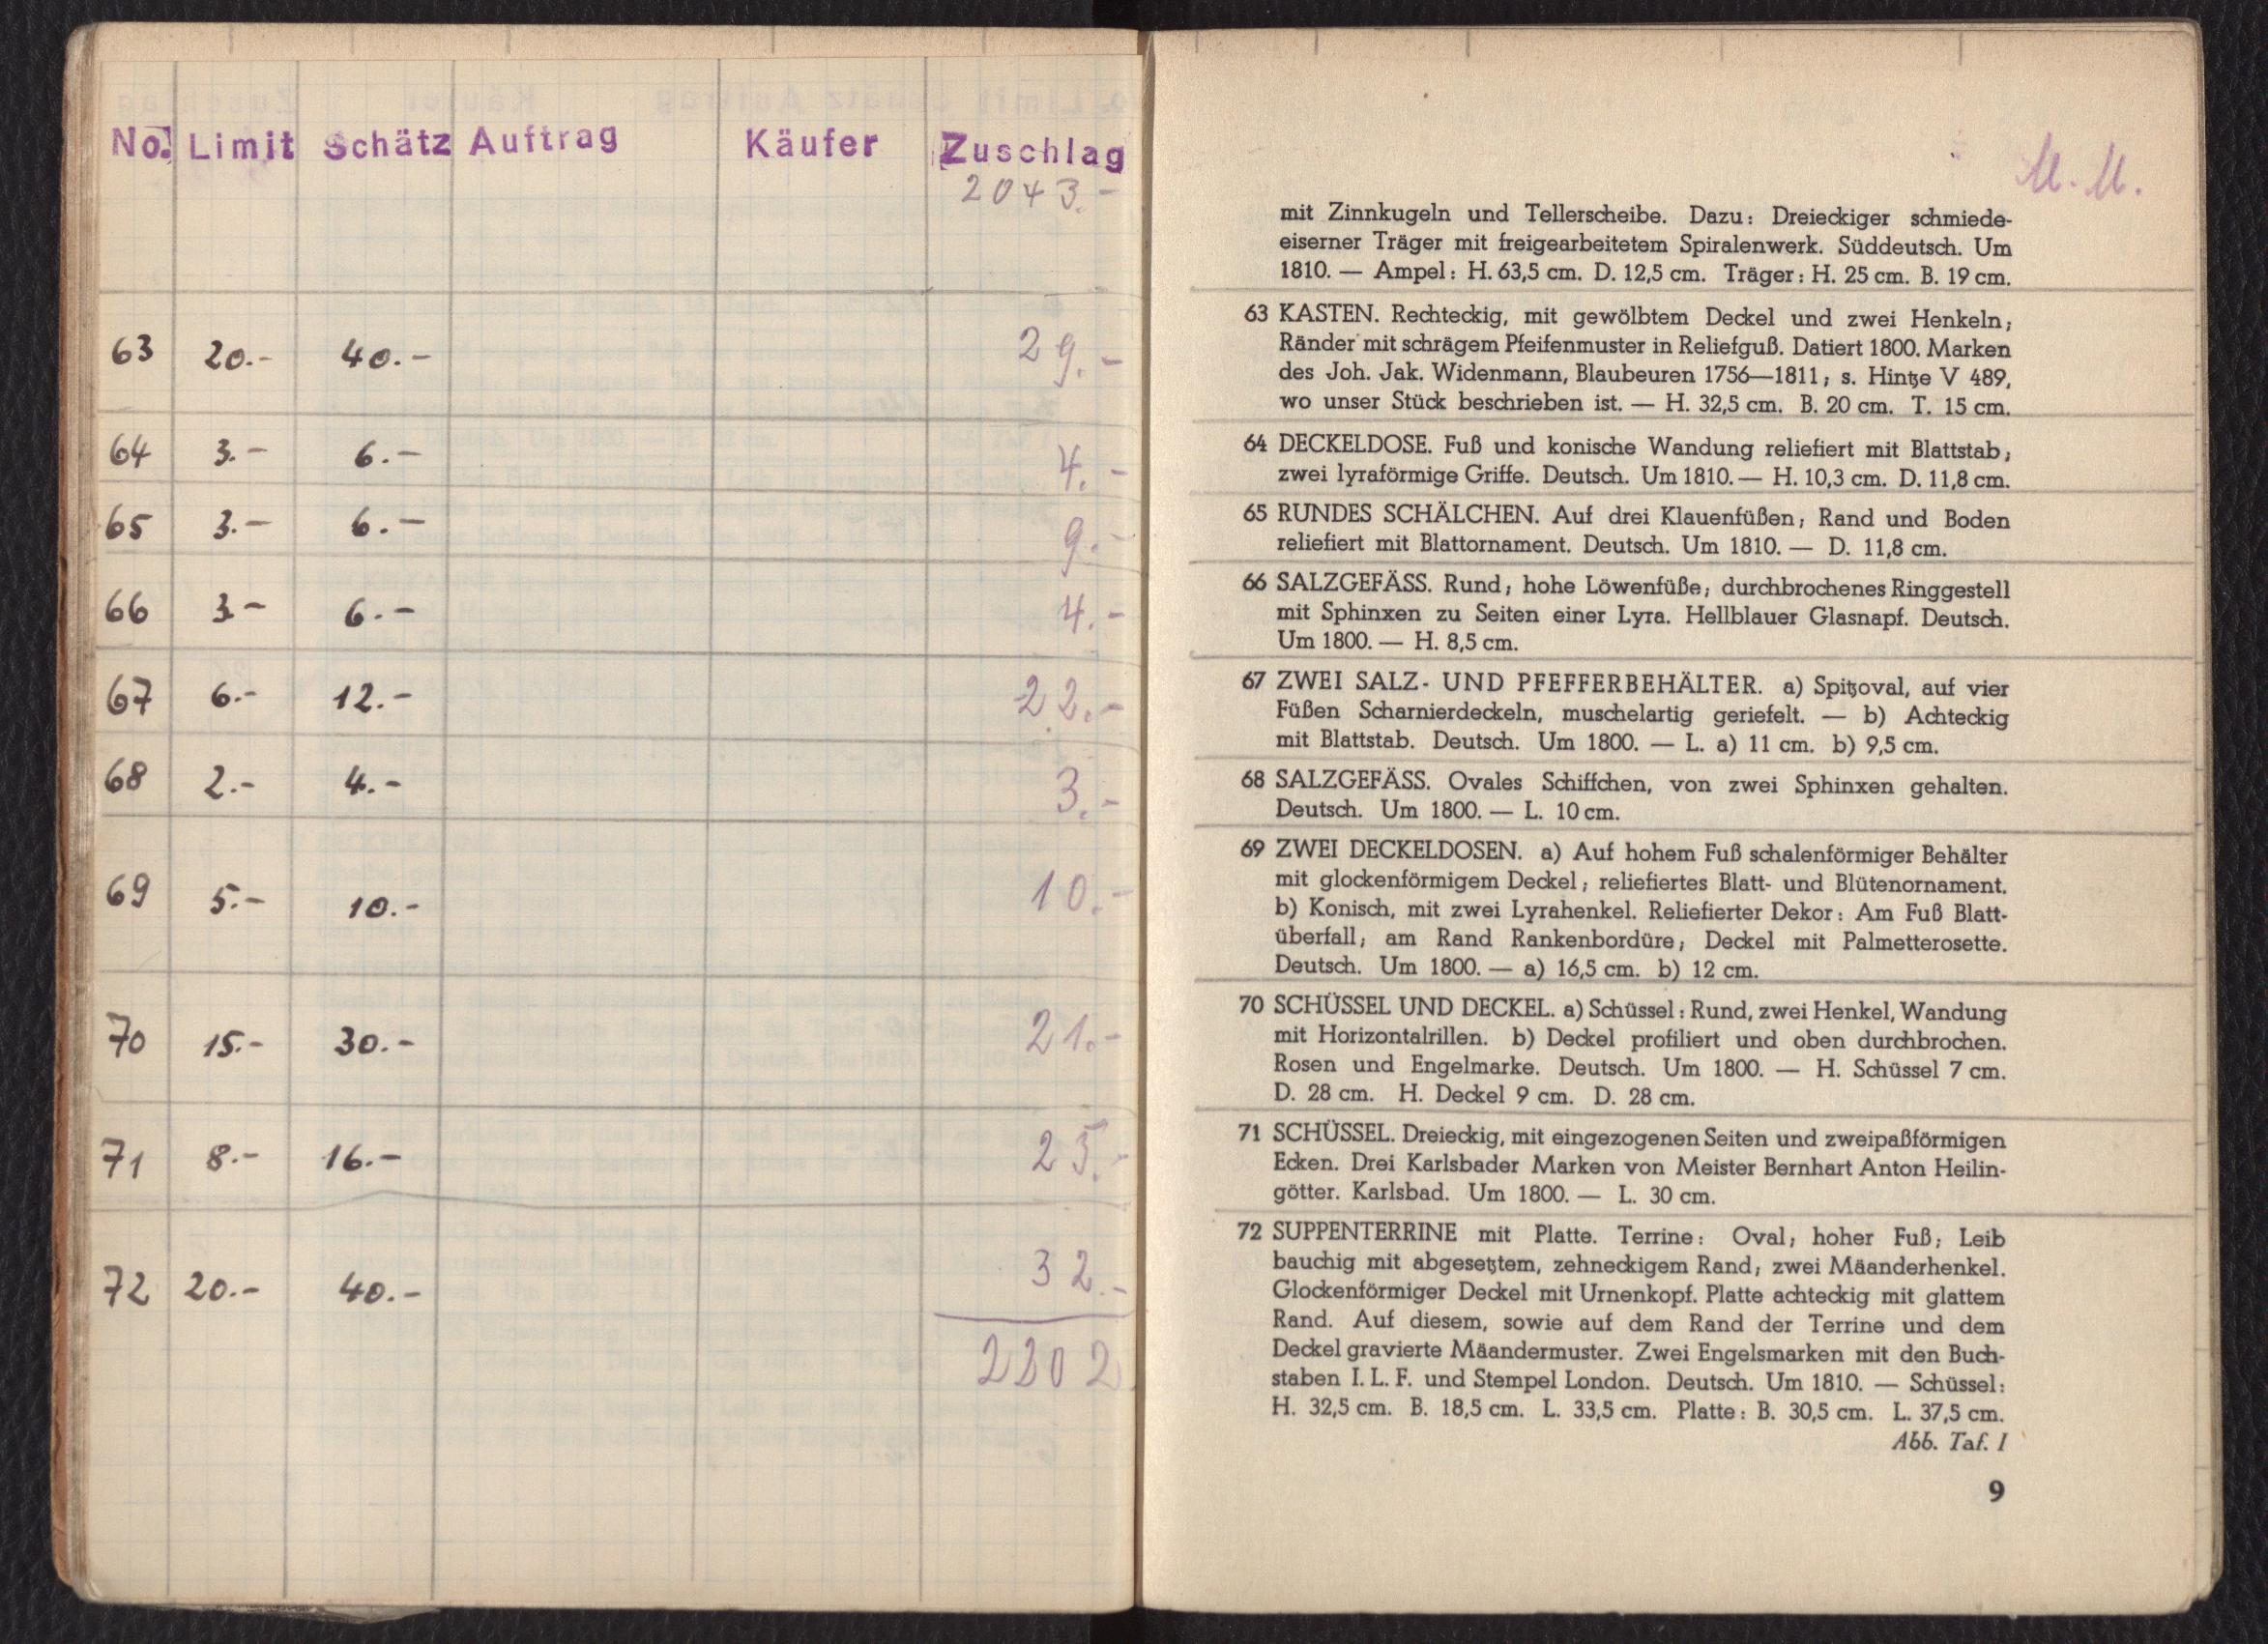 No. Limit Schätz Auftrag Käufer Zuschlag
2043.-
63 20.- 40.- 29.-
64 3.- 6.- 4.-
65 3.- 6.- 9.-
66 3.- 6.- 4.-
67 6.- 12.- 22.-
68 2.- 4.- 3.-
69 5.- 10.- 10.-
70 15.- 30.- 21.-
71 8.- 16.- 25.-
72 20.- 40.- 32.-
2202
M. M.
mit Zinnkugeln und Tellerscheibe. Dazu: Dreieckiger schmiede-
eiserner Träger mit freigearbeitetem Spiralenwerk. Süddeutsch. Um
1810. — Ampel: H. 63,5 cm. D. 12,5 cm. Träger: H. 25 cm. B. 19 cm.
63 KASTEN. Rechteckig, mit gewölbtem Deckel und zwei Henkeln;
Ränder mit schrägem Pfeifenmuster in Reliefguß. Datiert 1800. Marken
des Joh. Jak. Widenmann, Blaubeuren 1756—1811; s. Hintze V 489,
wo unser Stück beschrieben ist. — H. 32,5 cm. B. 20 cm. T. 15 cm.
64 DECKELDOSE. Fuß und konische Wandung reliefiert mit Blattstab;
zwei lyraförmige Griffe. Deutsch. Um 1810. — H. 10,3 cm. D. 11,8 cm.
65 RUNDES SCHÄLCHEN. Auf drei Klauenfüßen; Rand und Boden
reliefiert mit Blattornament. Deutsch. Um 1810. — D. 11,8 cm.
66 SALZGEFÄSS. Rund; hohe Löwenfüße; durchbrochenes Ringgestell
mit Sphinxen zu Seiten einer Lyra. Hellblauer Glasnapf. Deutsch.
Um 1800. — H. 8,5 cm.
67 ZWEI SALZ- UND PFEFFERBEHÄLTER. a) Spitzoval, auf vier
Füßen Scharnierdeckeln, muschelartig geriefelt. — b) Achteckig
mit Blattstab. Deutsch. Um 1800. — L. a) 11 cm. b) 9,5 cm.
68 SALZGEFÄSS. Ovales Schiffchen, von zwei Sphinxen gehalten.
Deutsch. Um 1800. — L. 10 cm.
69 ZWEI DECKELDOSEN. a) Auf hohem Fuß schalenförmiger Behälter
mit glockenförmigem Deckel; reliefiertes Blatt- und Blütenornament.
b) Konisch, mit zwei Lyrahenkel. Reliefierter Dekor: Am Fuß Blatt-
überfall; am Rand Rankenbordüre; Deckel mit Palmetterosette.
Deutsch. Um 1800. — a) 16,5 cm. b) 12 cm.
70 SCHÜSSEL UND DECKEL. a) Schüssel: Rund, zwei Henkel, Wandung
mit Horizontalrillen. b) Deckel profiliert und oben durchbrochen.
Rosen und Engelmarke. Deutsch. Um 1800. — H. Schüssel 7 cm.
D. 28 cm. H. Deckel 9 cm. D. 28 cm.
71 SCHÜSSEL. Dreieckig, mit eingezogenen Seiten und zweipaßförmigen
Ecken. Drei Karlsbader Marken von Meister Bernhart Anton Heilin-
götter. Karlsbad. Um 1800. — L. 30 cm.
72 SUPPENTERRINE mit Platte. Terrine: Oval; hoher Fuß; Leib
bauchig mit abgesetztem, zehneckigem Rand; zwei Mäanderhenkel.
Glockenförmiger Deckel mit Urnenkopf. Platte achteckig mit glattem
Rand. Auf diesem, sowie auf dem Rand der Terrine und dem
Deckel gravierte Mäandermuster. Zwei Engelsmarken mit den Buch-
staben I. L. F. und Stempel London. Deutsch. Um 1810. — Schüssel:
H. 32,5 cm. B. 18,5 cm. L. 33,5 cm. Platte: B. 30,5 cm. L. 37,5 cm.
Abb. Taf. I
9